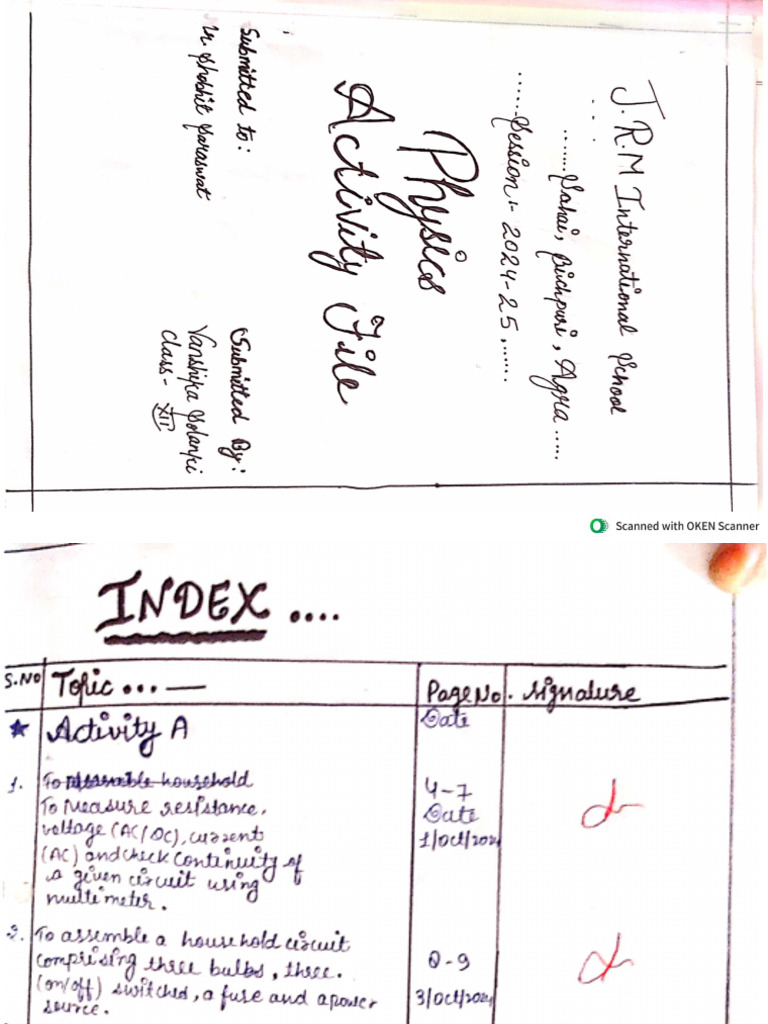 J.R.M International School
.......Sahai, Bichpuri, Agra......
......Session:- 2024-25.......
Physics
Activity File
Submitted to:
Sr Shobhit Saraswat
Submitted By:
Vanshika Solanki
Class- XII
Scanned with OKEN Scanner
INDEX ....
S.No Topic ...— Page No. Signature
Date
★ Activity A
1. To assemble household
To Measure resistance,
voltage (AC/DC), current
(AC) and check continuity of
a given circuit using
multimeter.
4-7
Date
1/Oct/2024
2. To assemble a household circuit
comprising three bulbs, three.
(on/off) switched, a fuse and a power
source.
8-9
3/Oct/2024